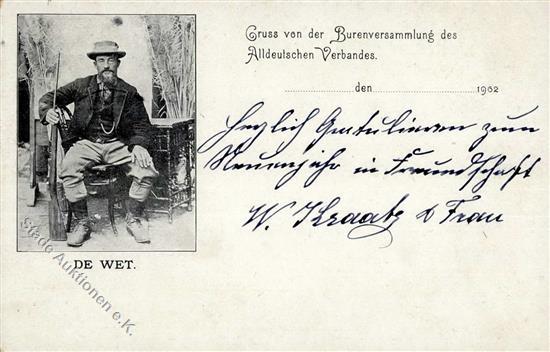 Gruss von der Burenversammlung des
Alldeutschen Verbandes.
den 1902
Herzlich Gratulieren zum
Neuenjahr in Freundschaft
W. Kraatz & Frau
DE WET.
Stade Auktionen e.K.